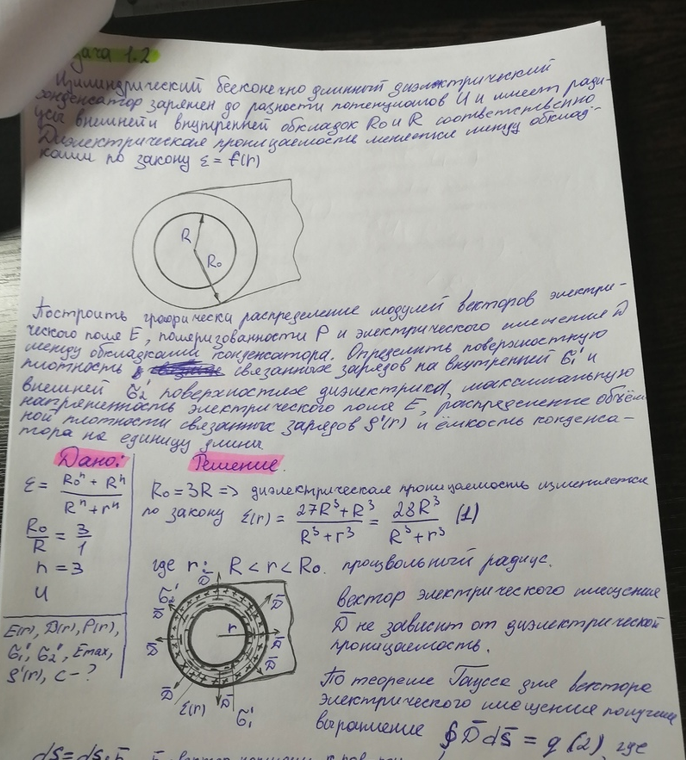 дача 1.2
Цилиндрический бесконечно длинный диэлектрический
конденсатор заряжен до разности потенциалов U и имеет ради-
усы внешней и внутренней обкладок R₀ и R соответственно
Диэлектрическая проницаемость меняется между обклад-
ками по закону ε = f(r)
R
R₀
Построить графически распределение модулей векторов электри-
ческого поля E, поляризованности P и электрического смещения D
между обкладками конденсатора. Определить поверхностную
плотность связанных зарядов на внутренней σ₁' и
внешней σ₂' поверхностях диэлектрика, максимальную
напряженность электрического поля E, распределение объём-
ной плотности связанных зарядов ρ'(r) и ёмкость конденса-
тора на единицу длины
Дано: Решение.
ε = (R₀ⁿ + Rⁿ)/(Rⁿ + rⁿ)
R₀/R = 3/1
n = 3
U
E(r), D(r), P(r),
σ₁', σ₂', Emax,
ρ'(r), C - ?
R₀ = 3R => диэлектрическая проницаемость изменяется
по закону ε(r) = (27R³ + R³)/(R³ + r³) = 28R³/(R³ + r³) (1)
где r: R < r < R₀. произвольный радиус.
σ₂' D̄
r
ε(r) σ₁'
Вектор электрического смещения
D̄ не зависит от диэлектрической
проницаемость.
По теореме Гаусса для вектора
электрического смещения получим
выражение ∮D̄ds̄ = q (2), где